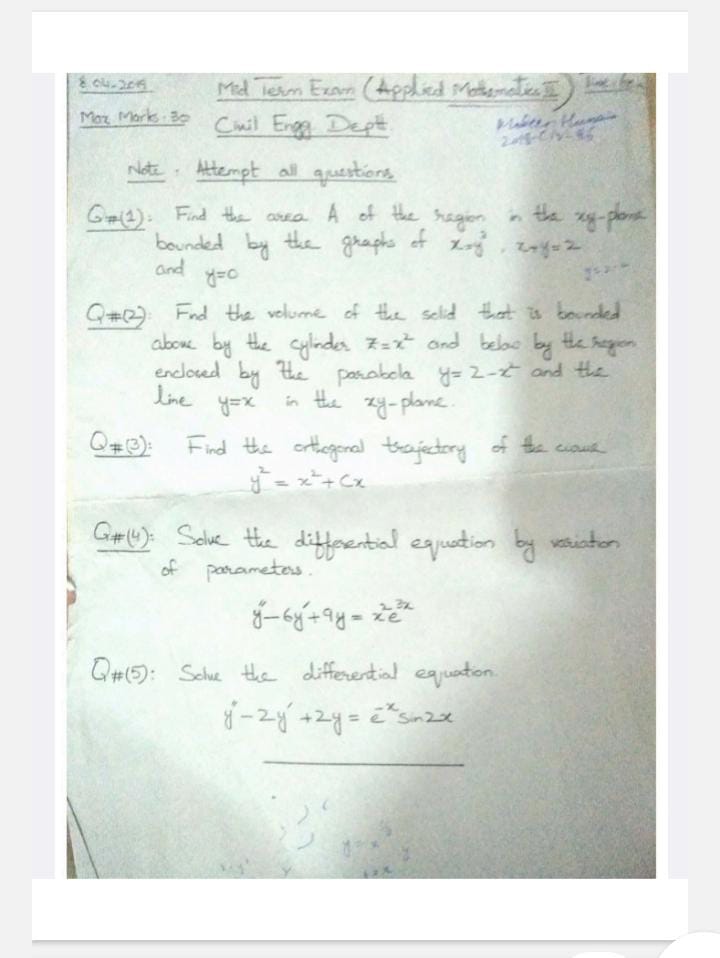 8.04.2019 Mid Term Exam (Applied Mathematics II)
Max Marks: 30 Civil Engg Deptt
Note: Attempt all questions
Q#(1): Find the area A of the region in the xy-plane
bounded by the graphs of x=y³, x+y=2
and y=0
Q#(2): Find the volume of the solid that is bounded
above by the cylinder z=x² and below by the region
enclosed by the parabola y=2-x² and the
line y=x in the xy-plane.
Q#(3): Find the orthogonal trajectory of the curve
y²=x²+Cx
Q#(4): Solve the differential equation by variation
of parameters.
y''-6y'+9y = x²e³ˣ
Q#(5): Solve the differential equation.
y''-2y'+2y = e⁻ˣ sin2x